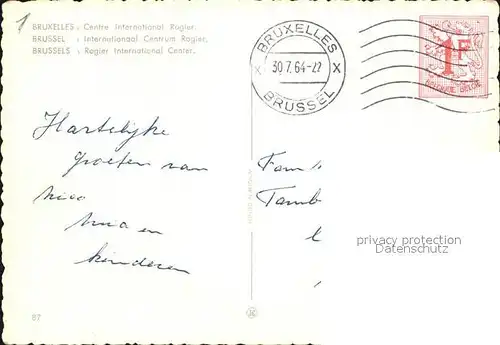 1
BRUXELLES : Centre International Rogier.
BRUSSEL : Internationaal Centrum Rogier.
BRUSSELS : Rogier International Center.
BRUXELLES
X 30.7.64-22 X
BRUSSEL
1F
BELGIQUE BELGIE
Hartelijke
groeten van
Nico
Mia en
kinderen
Fam
Tamb
privacy protection
Datenschutz
87